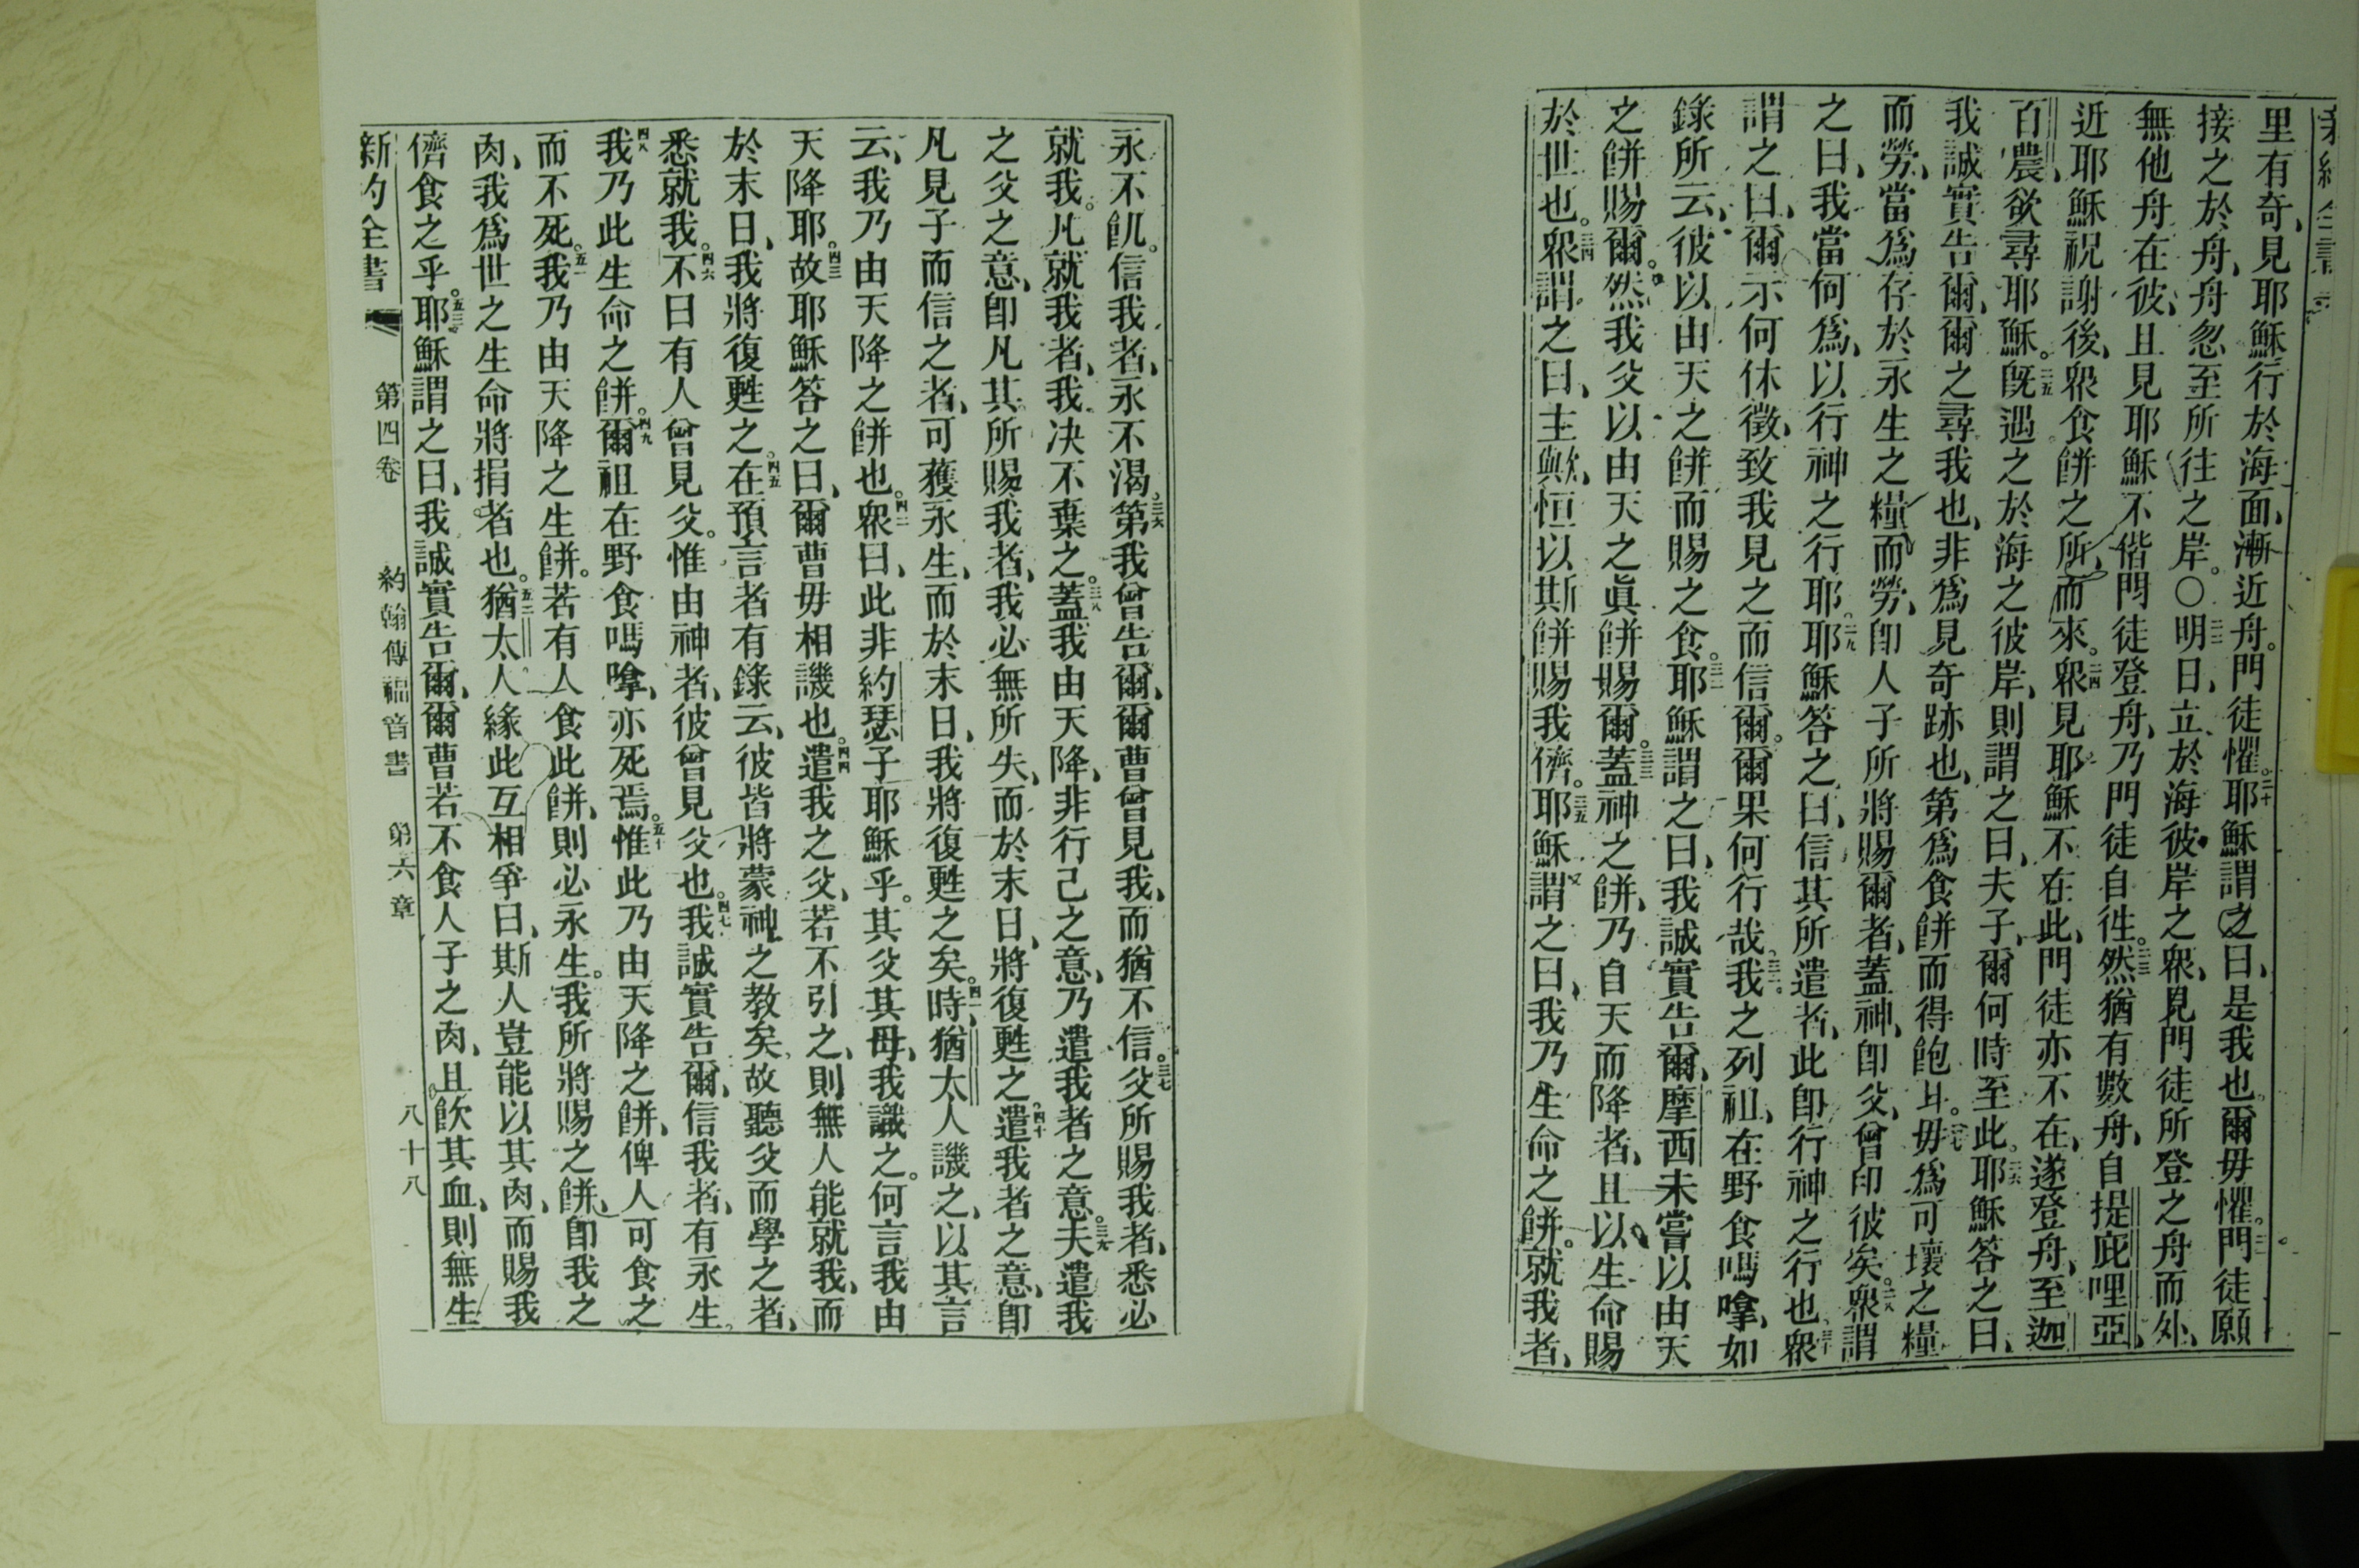 里有奇、見耶穌行於海面、漸近舟。門徒懼。二十耶穌謂之曰、是我也、爾毋懼。二一門徒願
接之於舟、舟忽至所往之岸。〇二二明日、立於海彼岸之衆、見門徒所登之舟而外、
無他舟在彼、且見耶穌不偕門徒登舟、乃門徒自徃。二三然猶有數舟、自提庇哩亞、
近耶穌祝謝後、衆食餅之所、而來。二四衆見耶穌不在此、門徒亦不在、遂登舟、至迦
百農、欲尋耶穌。二五旣遇之於海之彼岸、則謂之曰、夫子、爾何時至此。二六耶穌答之曰、
我誠實告爾、爾之尋我也、非爲見奇跡也、第爲食餅而得飽耳。二七毋爲可壞之糧
而勞、當爲存於永生之糧而勞、卽人子所將賜爾者、蓋神、卽父、曾印彼矣。二八衆謂
之曰、我當何爲、以行神之行耶。二九耶穌答之曰、信其所遣者、此卽行神之行也。三十衆
謂之曰、爾示何休徵、致我見之而信爾。爾果何行哉。三一我之列祖、在野食嗎嗱、如
錄所云、彼以由天之餅而賜之食。三二耶穌謂之曰、我誠實告爾、摩西未嘗以由天
之餅賜爾。然我父以由天之眞餅賜爾。三三蓋神之餅、乃自天而降者、且以生命賜
於世也。三四衆謂之曰、主歟、恒以斯餅賜我儕。三五耶穌謂之曰、我乃生命之餅。就我者、
永不飢。信我者、永不渴。三六第我曾告爾、爾曹曾見我、而猶不信。三七父所賜我者、悉必
就我。凡就我者、我决不棄之。三八蓋我由天降、非行己之意、乃遣我者之意。三九夫遣我
之父之意、卽凡其所賜我者、我必無所失、而於末日、將復甦之。四十遣我者之意、卽
凡見子而信之者、可獲永生、而於末日、我將復甦之矣。四一時、猶太人譏之、以其言
云、我乃由天降之餅也。四二衆曰、此非約瑟子耶穌乎。其父其母、我識之。何言我由
天降耶。四三故耶穌答之曰、爾曹毋相譏也。四四遣我之父、若不引之、則無人能就我、而
於末日、我將復甦之。四五在預言者有錄云、彼皆將蒙神之教矣。故聽父而學之者、
悉就我。四六不曰有人曾見父。惟由神者、彼曾見父也。四七我誠實告爾、信我者、有永生。
四八我乃此生命之餅。四九爾祖在野食嗎嗱、亦死焉。五十惟此乃由天降之餅、俾人可食之
而不死。五一我乃由天降之生餅。若有人食此餅、則必永生。我所將賜之餅、卽我之
肉、我爲世之生命將捐者也。五二猶太人緣此互相爭曰、斯人豈能以其肉、而賜我
儕食之乎。五三耶穌謂之曰、我誠實告爾、爾曹若不食人子之肉、且飲其血、則無生
新約全書 第四卷 約翰傳福音書 第六章 八十八